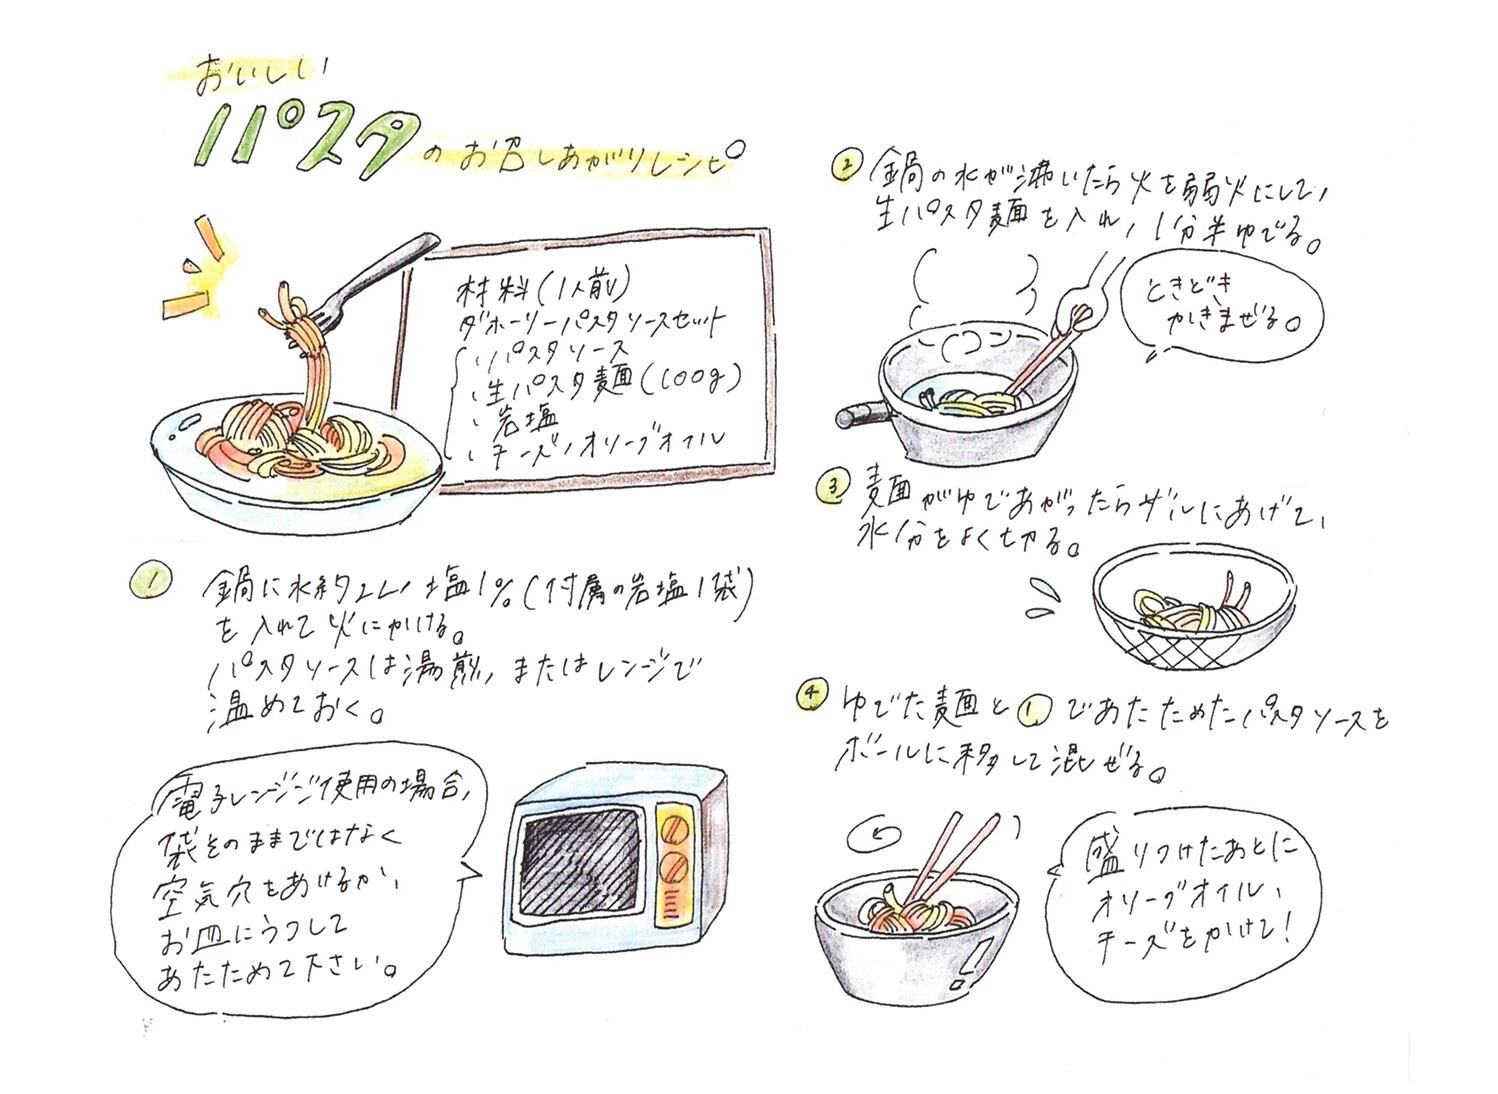 おいしい
パスタのお召しあがりレシピ
材料(1人前)
ダホーリーパスタソースセット
・パスタソース
・生パスタ麺(100g)
・岩塩
・チーズ、オリーブオイル
① 鍋に水約2L、塩1%(付属の岩塩1袋)
を入れて火にかける。
パスタソースは湯煎、またはレンジで
温めておく。
電子レンジご使用の場合、
袋そのままではなく
空気穴をあけるか、
お皿にうつして
あたためて下さい。
② 鍋の水が沸いたら火を弱火にして、
生パスタ麺を入れ、1分半ゆでる。
ときどき
かきまぜる。
③ 麺がゆであがったらザルにあげて、
水分をよく切る。
④ ゆでた麺と①であたためたパスタソースを
ボールに移して混ぜる。
盛りつけたあとに
オリーブオイル、
チーズをかけて!